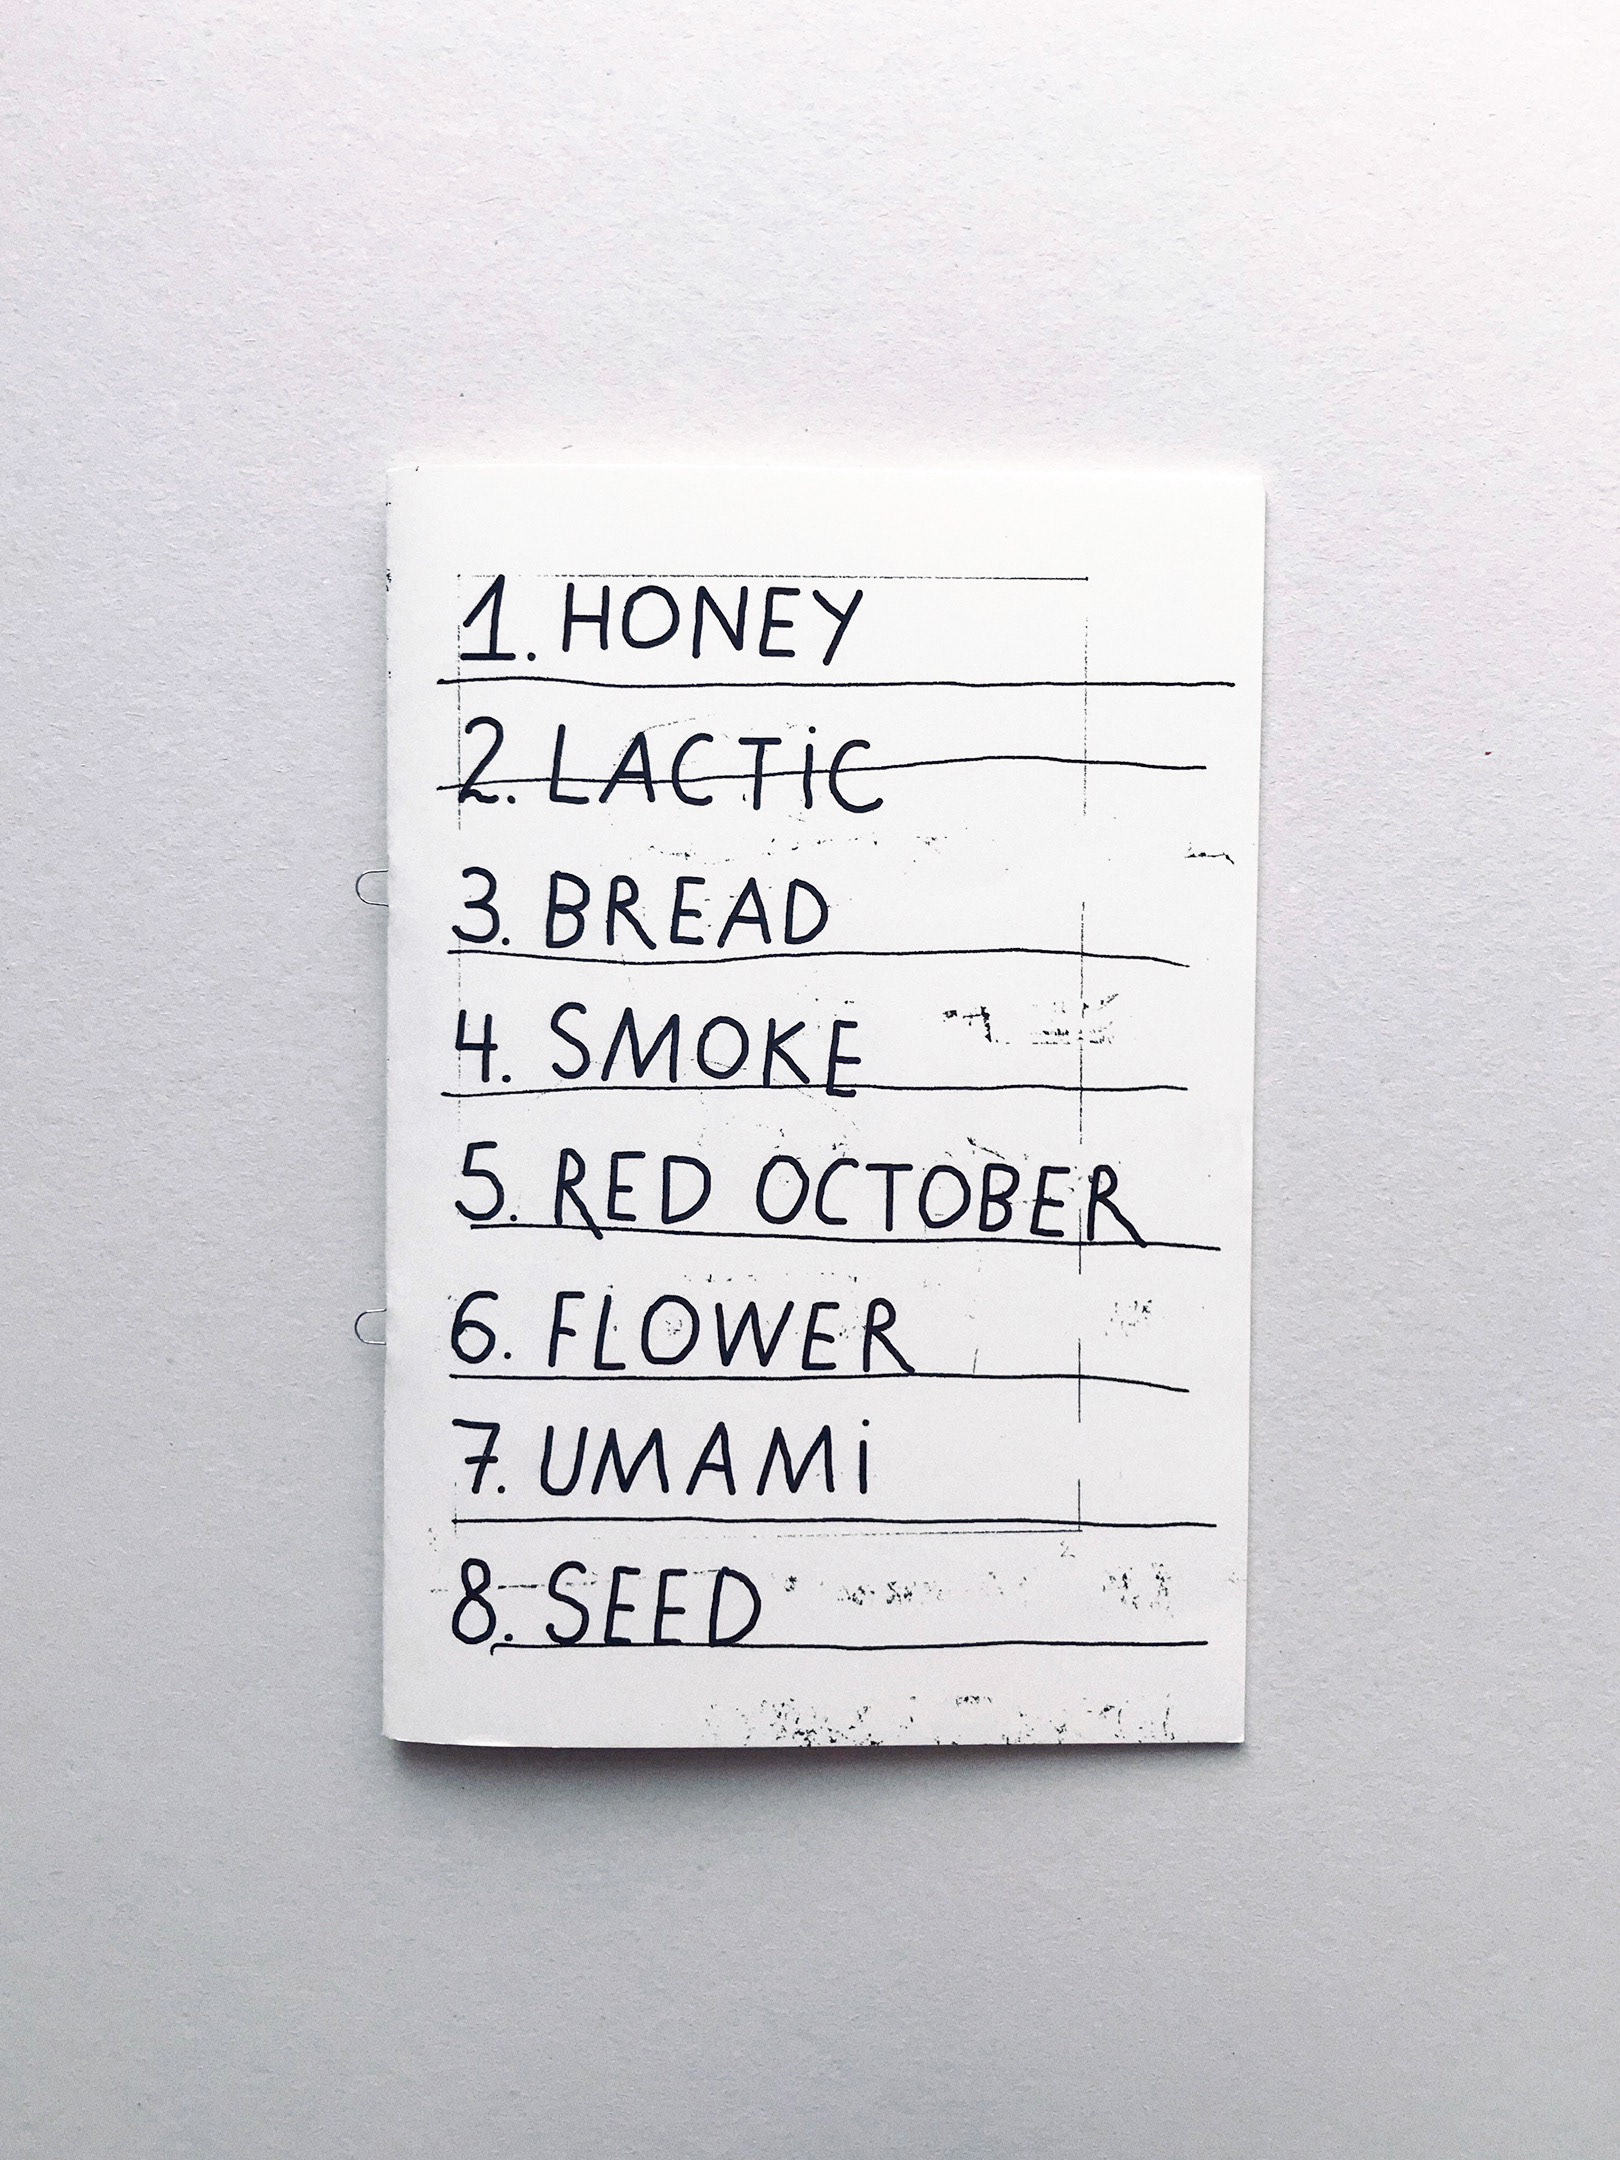 1. HONEY
2. LACTiC
3. BREAD
4. SMOKE
5. RED OCTOBER
6. FLOWER
7. UMAMi
8. SEED